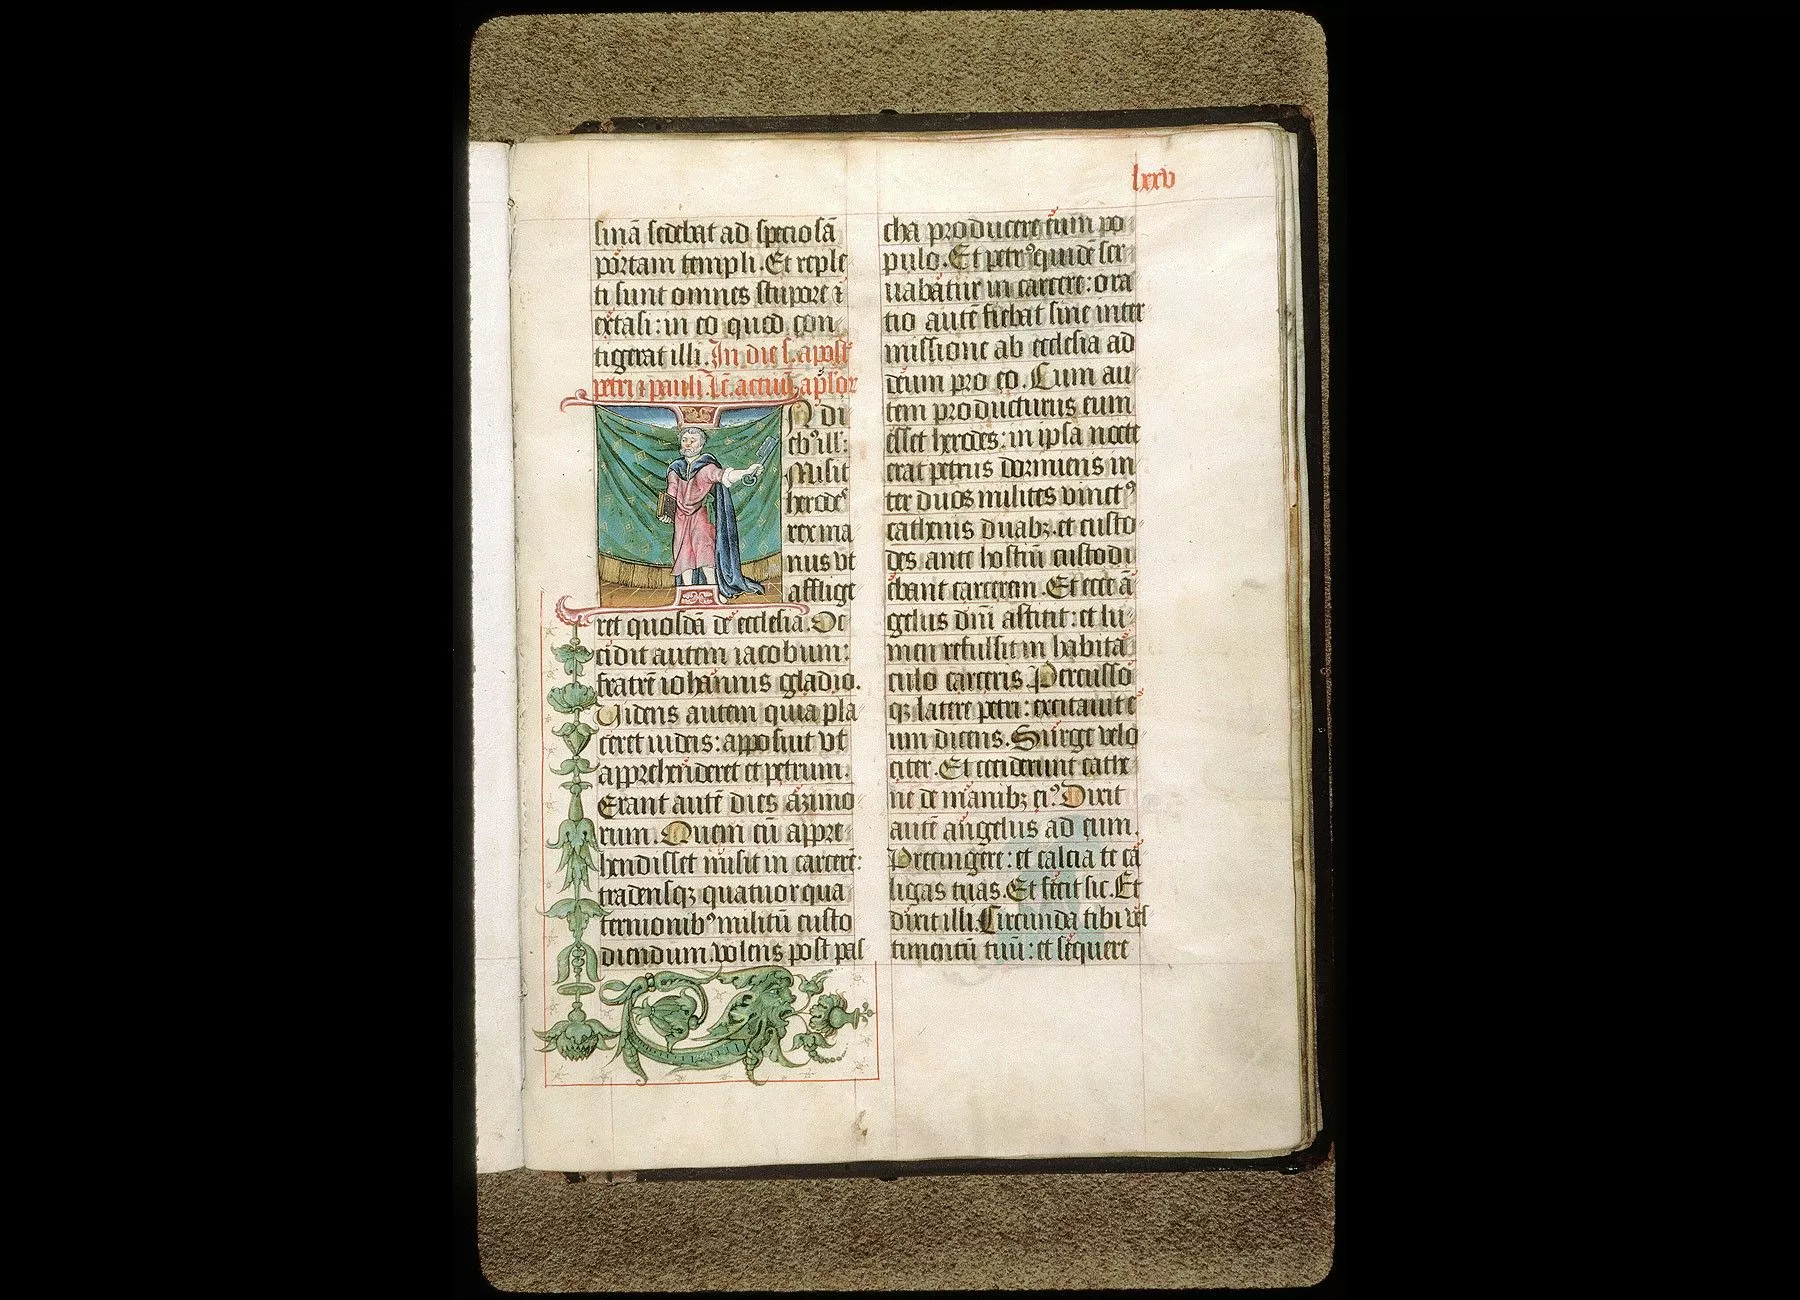 lxxv
sinā sedebat ad speciosā
portam templi. Et reple
ti sunt omnes stupore ⁊
extasi: in eo quod con
tigerat illi. In die s. apost̄
petri ⁊ pauli. Lc̄ actuū ap̄lor
IN di
ebꝰ ill̄:
Misit
herodeˢ
rex ma
nus vt
afflige
ret quosdā de ecclesia. Oc
cidit autem iacobum:
fratrē iohannis gladio.
Uidens autem quia pla
ceret iudeis: apposuit vt
apprehenderet et petrum.
Erant autē dies azimo
rum. Quem cū appre
hendisset misit in carcerē:
tradensqꝫ quatuor qua
ternionibꝰ militū custo
diendum. volens post pas
cha producere eum po
pulo. Et petrꝰ quidē ser
uabatur in carcere: ora
tio autē fiebat sine inter
missione ab ecclesia ad
deum pro eo. Cum au
tem producturus eum
esset herodes: in ipsa nocte
erat petrus dormiens in
ter duos milites vinctꝰ
cathenis duabꝫ. et custo
des ante hostiū custodi
ebant carcerem. Et ecce ā
gelus dn̄i astitit: et lu
men refulsit in habita
culo carceris. Percusso
qꝫ latere petri: excitauit e
um dicens. Surge velo
citer. Et ceciderunt cathe
ne de manibꝫ eiꝰ. Dixit
autē angelus ad eum.
Precingere: et calcia te ca
ligas tuas. Et fecit sic. Et
dixit illi. Circunda tibi ves
timentū tuū: et sequere